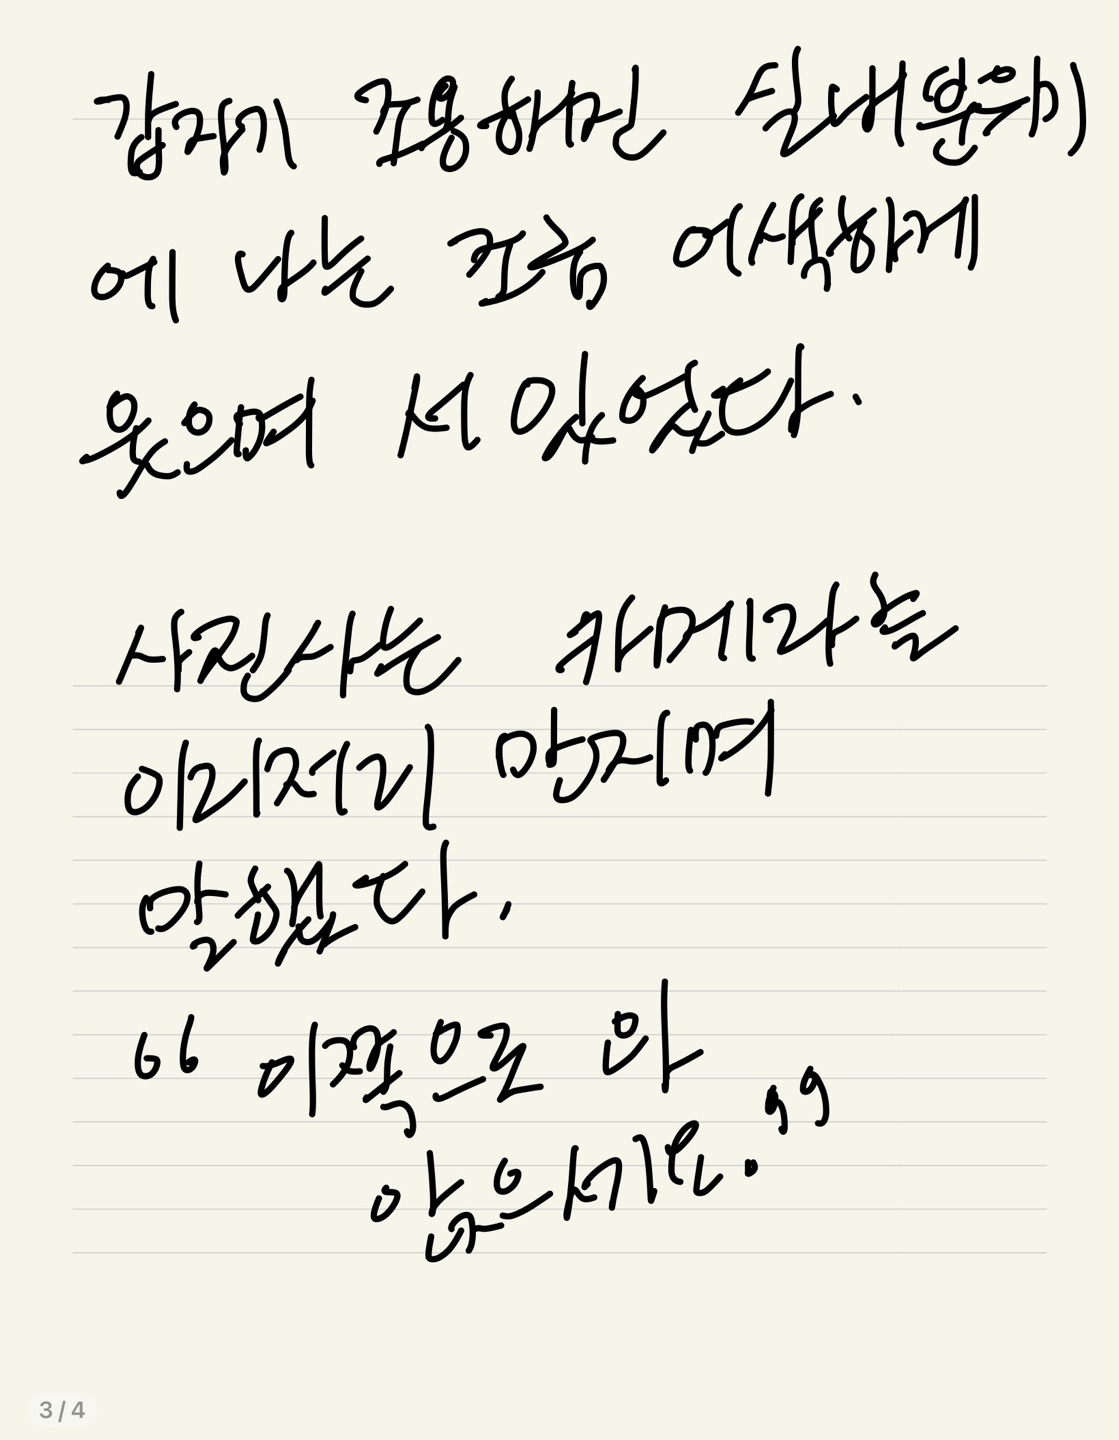 갑자기 조용해진 실내분위기
에 나는 조금 어색하게
웃으며 서 있었다.
사진사는 카메라를
이리저리 만지며
말했다.
"이쪽으로 와
앉으세요."
3/4